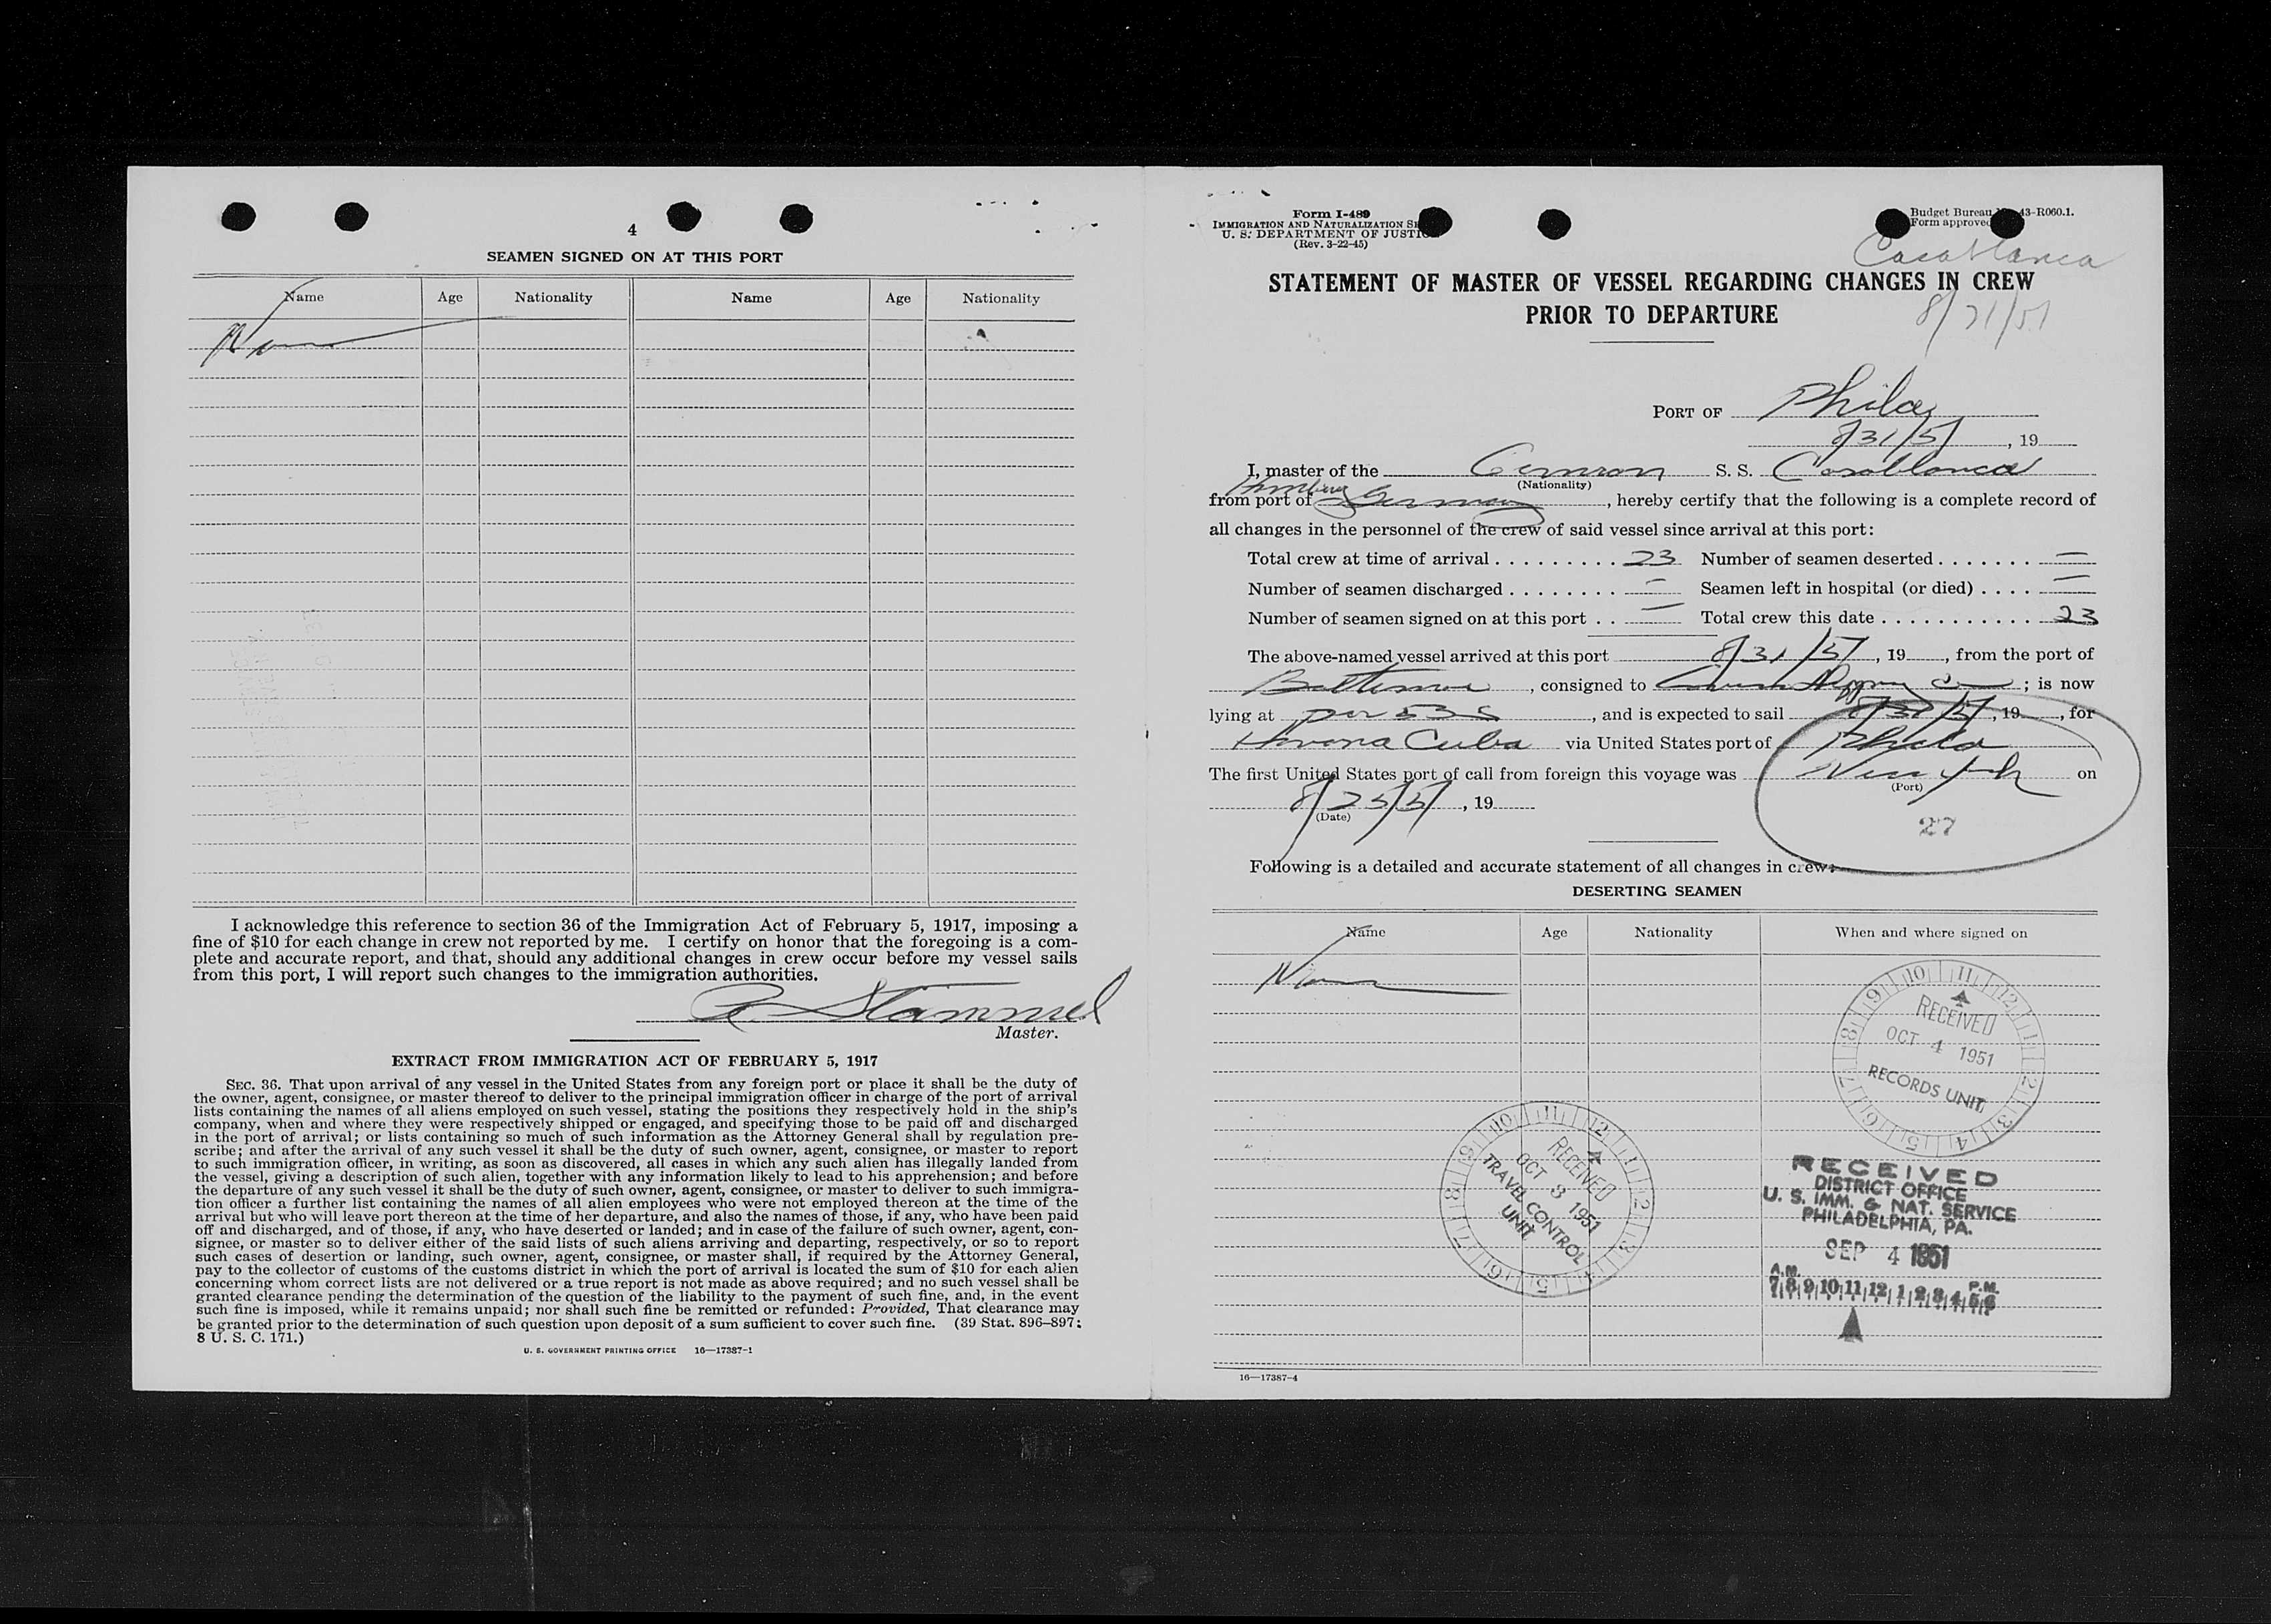 4
SEAMEN SIGNED ON AT THIS PORT
Name Age Nationality Name Age Nationality
None
I acknowledge this reference to section 36 of the Immigration Act of February 5, 1917, imposing a
fine of $10 for each change in crew not reported by me. I certify on honor that the foregoing is a com-
plete and accurate report, and that, should any additional changes in crew occur before my vessel sails
from this port, I will report such changes to the immigration authorities.
Stammel
Master.
EXTRACT FROM IMMIGRATION ACT OF FEBRUARY 5, 1917
SEC. 36. That upon arrival of any vessel in the United States from any foreign port or place it shall be the duty of
the owner, agent, consignee, or master thereof to deliver to the principal immigration officer in charge of the port of arrival
lists containing the names of all aliens employed on such vessel, stating the positions they respectively hold in the ship's
company, when and where they were respectively shipped or engaged, and specifying those to be paid off and discharged
in the port of arrival; or lists containing so much of such information as the Attorney General shall by regulation pre-
scribe; and after the arrival of any such vessel it shall be the duty of such owner, agent, consignee, or master to report
to such immigration officer, in writing, as soon as discovered, all cases in which any such alien has illegally landed from
the vessel, giving a description of such alien, together with any information likely to lead to his apprehension; and before
the departure of any such vessel it shall be the duty of such owner, agent, consignee, or master to deliver to such immigra-
tion officer a further list containing the names of all alien employees who were not employed thereon at the time of the
arrival but who will leave port thereon at the time of her departure, and also the names of those, if any, who have been paid
off and discharged, and of those, if any, who have deserted or landed; and in case of the failure of such owner, agent, con-
signee, or master so to deliver either of the said lists of such aliens arriving and departing, respectively, or so to report
such cases of desertion or landing, such owner, agent, consignee, or master shall, if required by the Attorney General,
pay to the collector of customs of the customs district in which the port of arrival is located the sum of $10 for each alien
concerning whom correct lists are not delivered or a true report is not made as above required; and no such vessel shall be
granted clearance pending the determination of the question of the liability to the payment of such fine, and, in the event
such fine is imposed, while it remains unpaid; nor shall such fine be remitted or refunded: Provided, That clearance may
be granted prior to the determination of such question upon deposit of a sum sufficient to cover such fine. (39 Stat. 896–897;
8 U. S. C. 171.)
U. S. GOVERNMENT PRINTING OFFICE 16—17387-1
Form I-489
IMMIGRATION AND NATURALIZATION
U. S. DEPARTMENT OF JUSTIC
(Rev. 3-22-45)
Budget Bureau 43-R060.1.
Form approved
Casablanca
8/21/51
STATEMENT OF MASTER OF VESSEL REGARDING CHANGES IN CREW
PRIOR TO DEPARTURE
PORT OF Phila
8/31/51, 19
I, master of the German S. S. Casablanca
(Nationality)
from port of Germany, hereby certify that the following is a complete record of
all changes in the personnel of the crew of said vessel since arrival at this port:
Total crew at time of arrival 23 Number of seamen deserted —
Number of seamen discharged — Seamen left in hospital (or died) —
Number of seamen signed on at this port — Total crew this date 23
The above-named vessel arrived at this port 8/31/51, 19, from the port of
Baltimore, consigned to Shipping Co; is now
lying at 53 S, and is expected to sail 8/31/51, 19, for
Havana Cuba via United States port of Phila
The first United States port of call from foreign this voyage was New York on
(Port)
8/25/51, 19
(Date)
27
Following is a detailed and accurate statement of all changes in crew:
DESERTING SEAMEN
Name Age Nationality When and where signed on
None
RECEIVED
OCT 4 1951
RECORDS UNIT
RECEIVED
OCT 3 1951
TRAVEL CONTROL
UNIT
RECEIVED
DISTRICT OFFICE
U. S. IMM. & NAT. SERVICE
PHILADELPHIA, PA.
SEP 4 1951
A.M. P.M.
7 8 9 10 11 12 1 2 3 4 5 6
16—17387-4